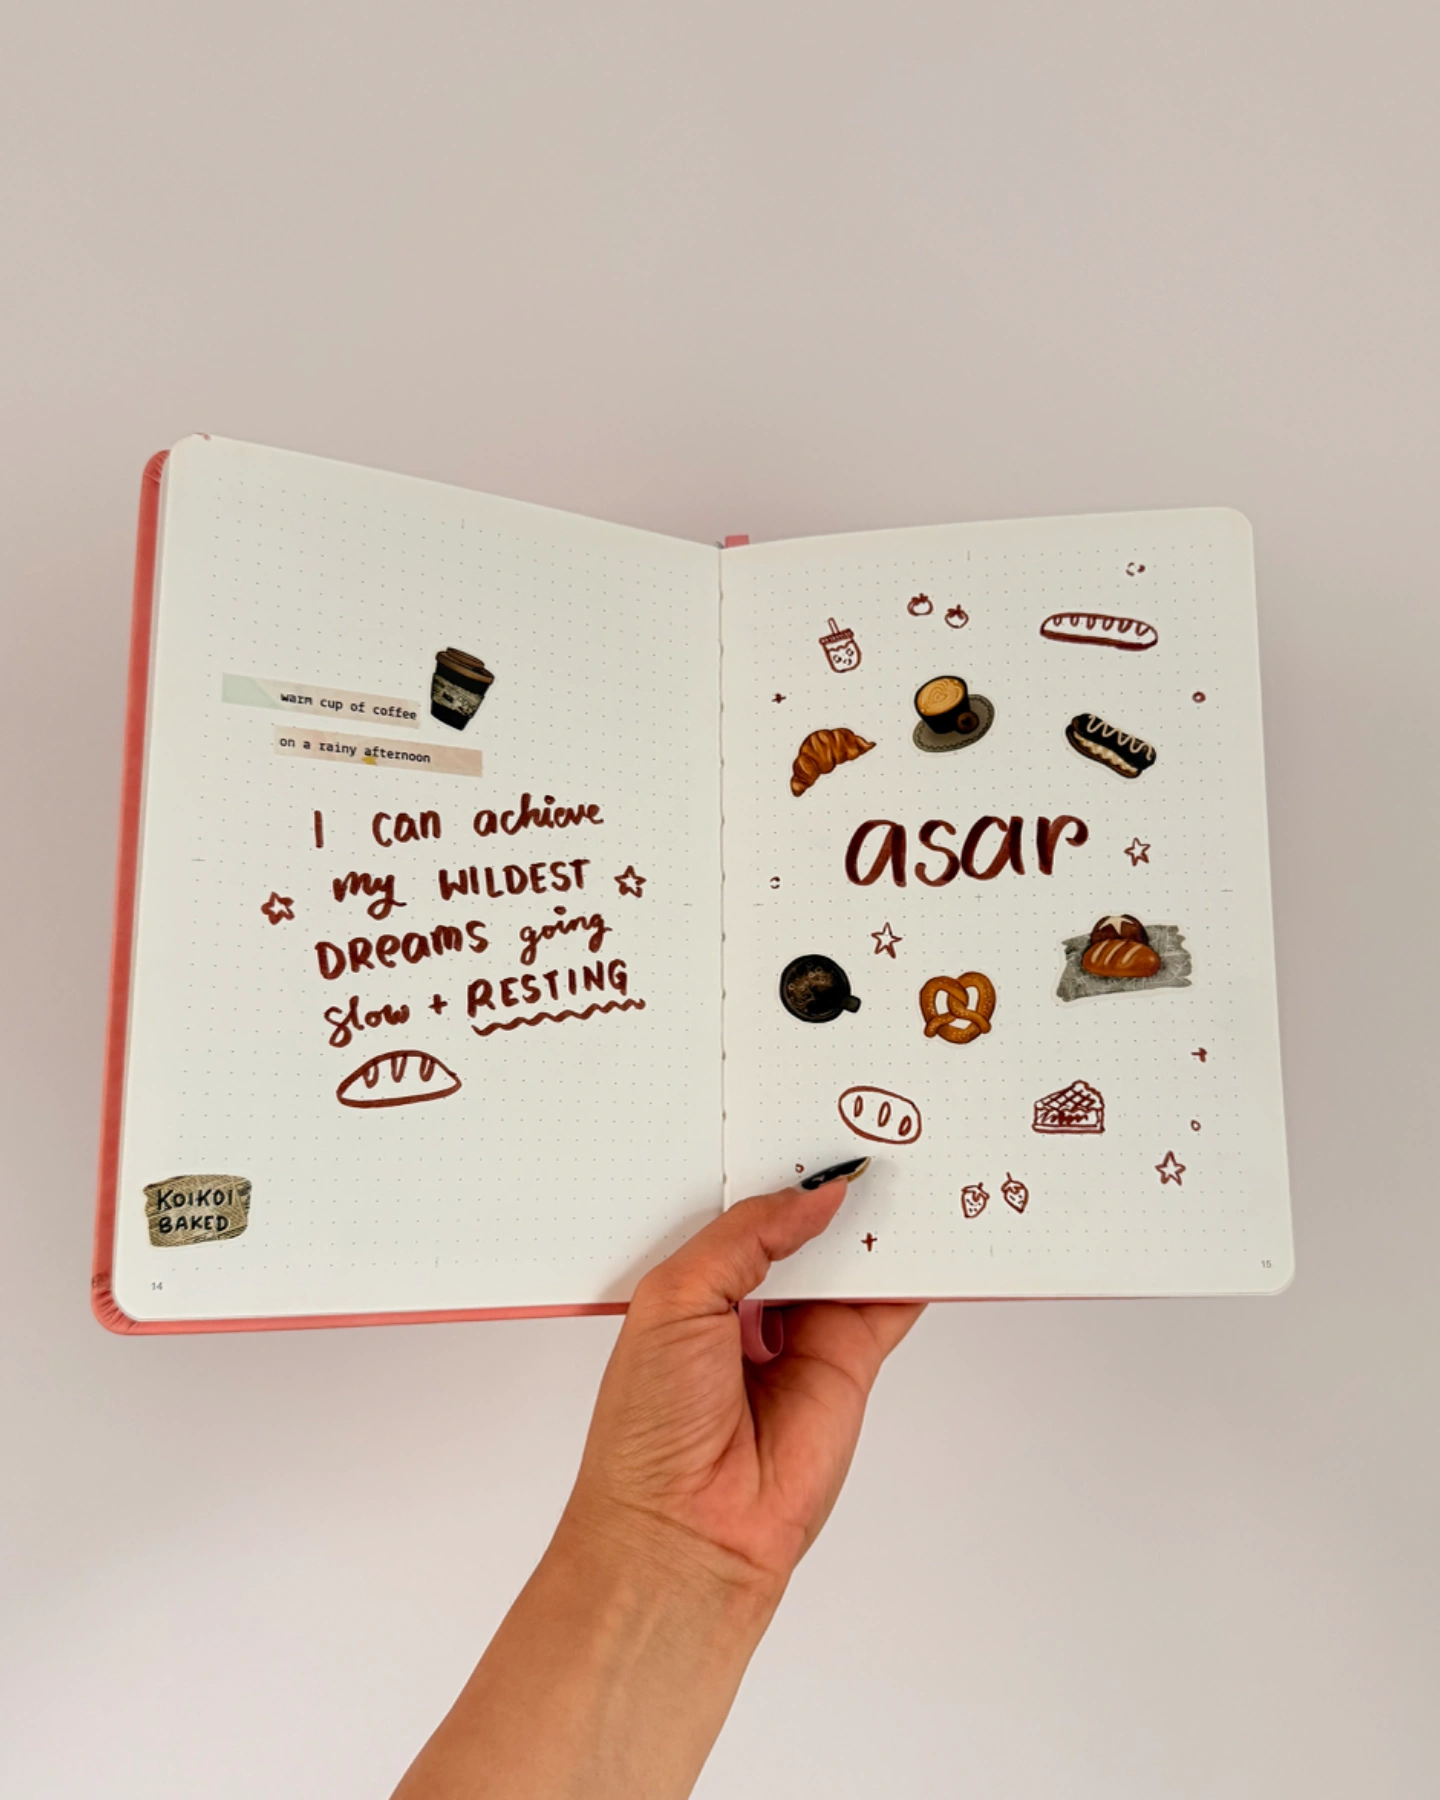 warm cup of coffee
on a rainy afternoon
I can achieve
my WILDEST
DREAMS going
slow + RESTING
KOIKOI
BAKED
14
asar
15